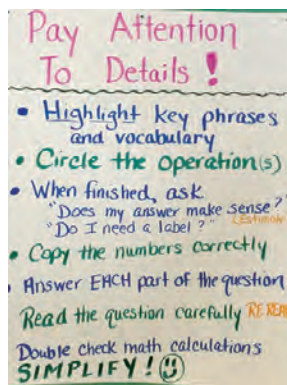 Pay Attention
To Details!
• Highlight key phrases
and vocabulary
• Circle the operation(s)
• When finished, ask
"Does my answer make sense?"
"Do I need a label?" (Estimate
• Copy the numbers correctly
• Answer EACH part of the question
Read the question carefully RE READ
Double check math calculations
SIMPLIFY!